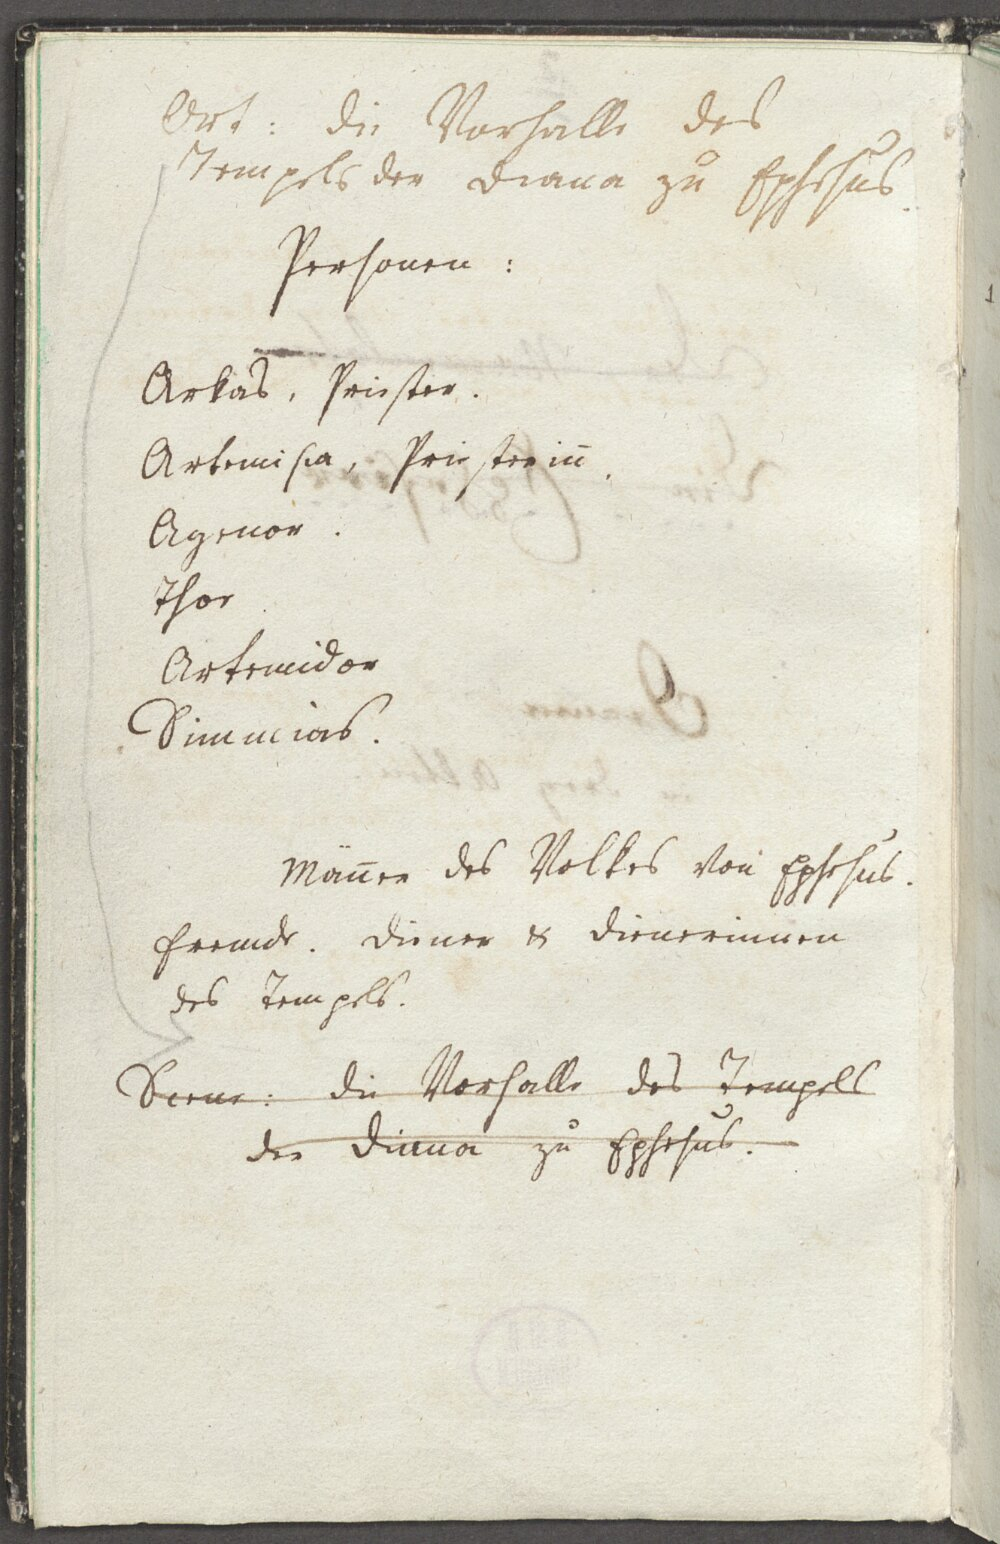 Ort: die Vorhalle des
Tempels der Diana zu Ephesus.
Personen:
Arkas, Priester.
Artemisia, Priesterin̄.
Agenor.
Thor
Artemidor
Simmias.
Män̄er des Volkes von Ephesus.
Fremde. Diener & Dienerinnen
des Tempels.
Scene: die Vorhalle des Tempels
der Diana zu Ephesus.